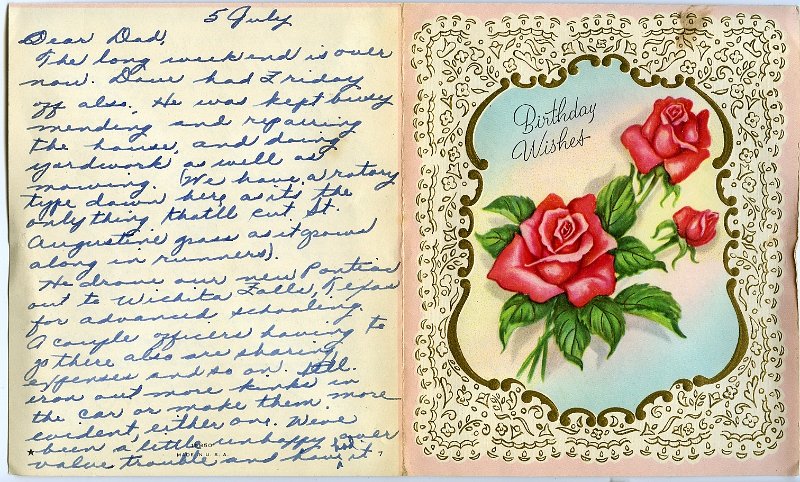 5 July
Dear Dad,
The long week end is over
now. Dave had Friday
off also. He was kept busy
mending and repairing
the house, and doing
yardwork as well as
mowing. (We have a rotary
type down here as its the
only thing that'll cut St.
Augustine grass as it grows
along in runners).
He drove our new Pontiac
out to Wichita Falls, Texas
for advanced schooling.
A couple officers having to
go there also are sharing
expenses and so on. He'll
iron out more kinks in
the car or make them more
evident, either one. We've
been a little unhappy over
value trouble and have it
MADE IN U.S.A.
Birthday
Wishes